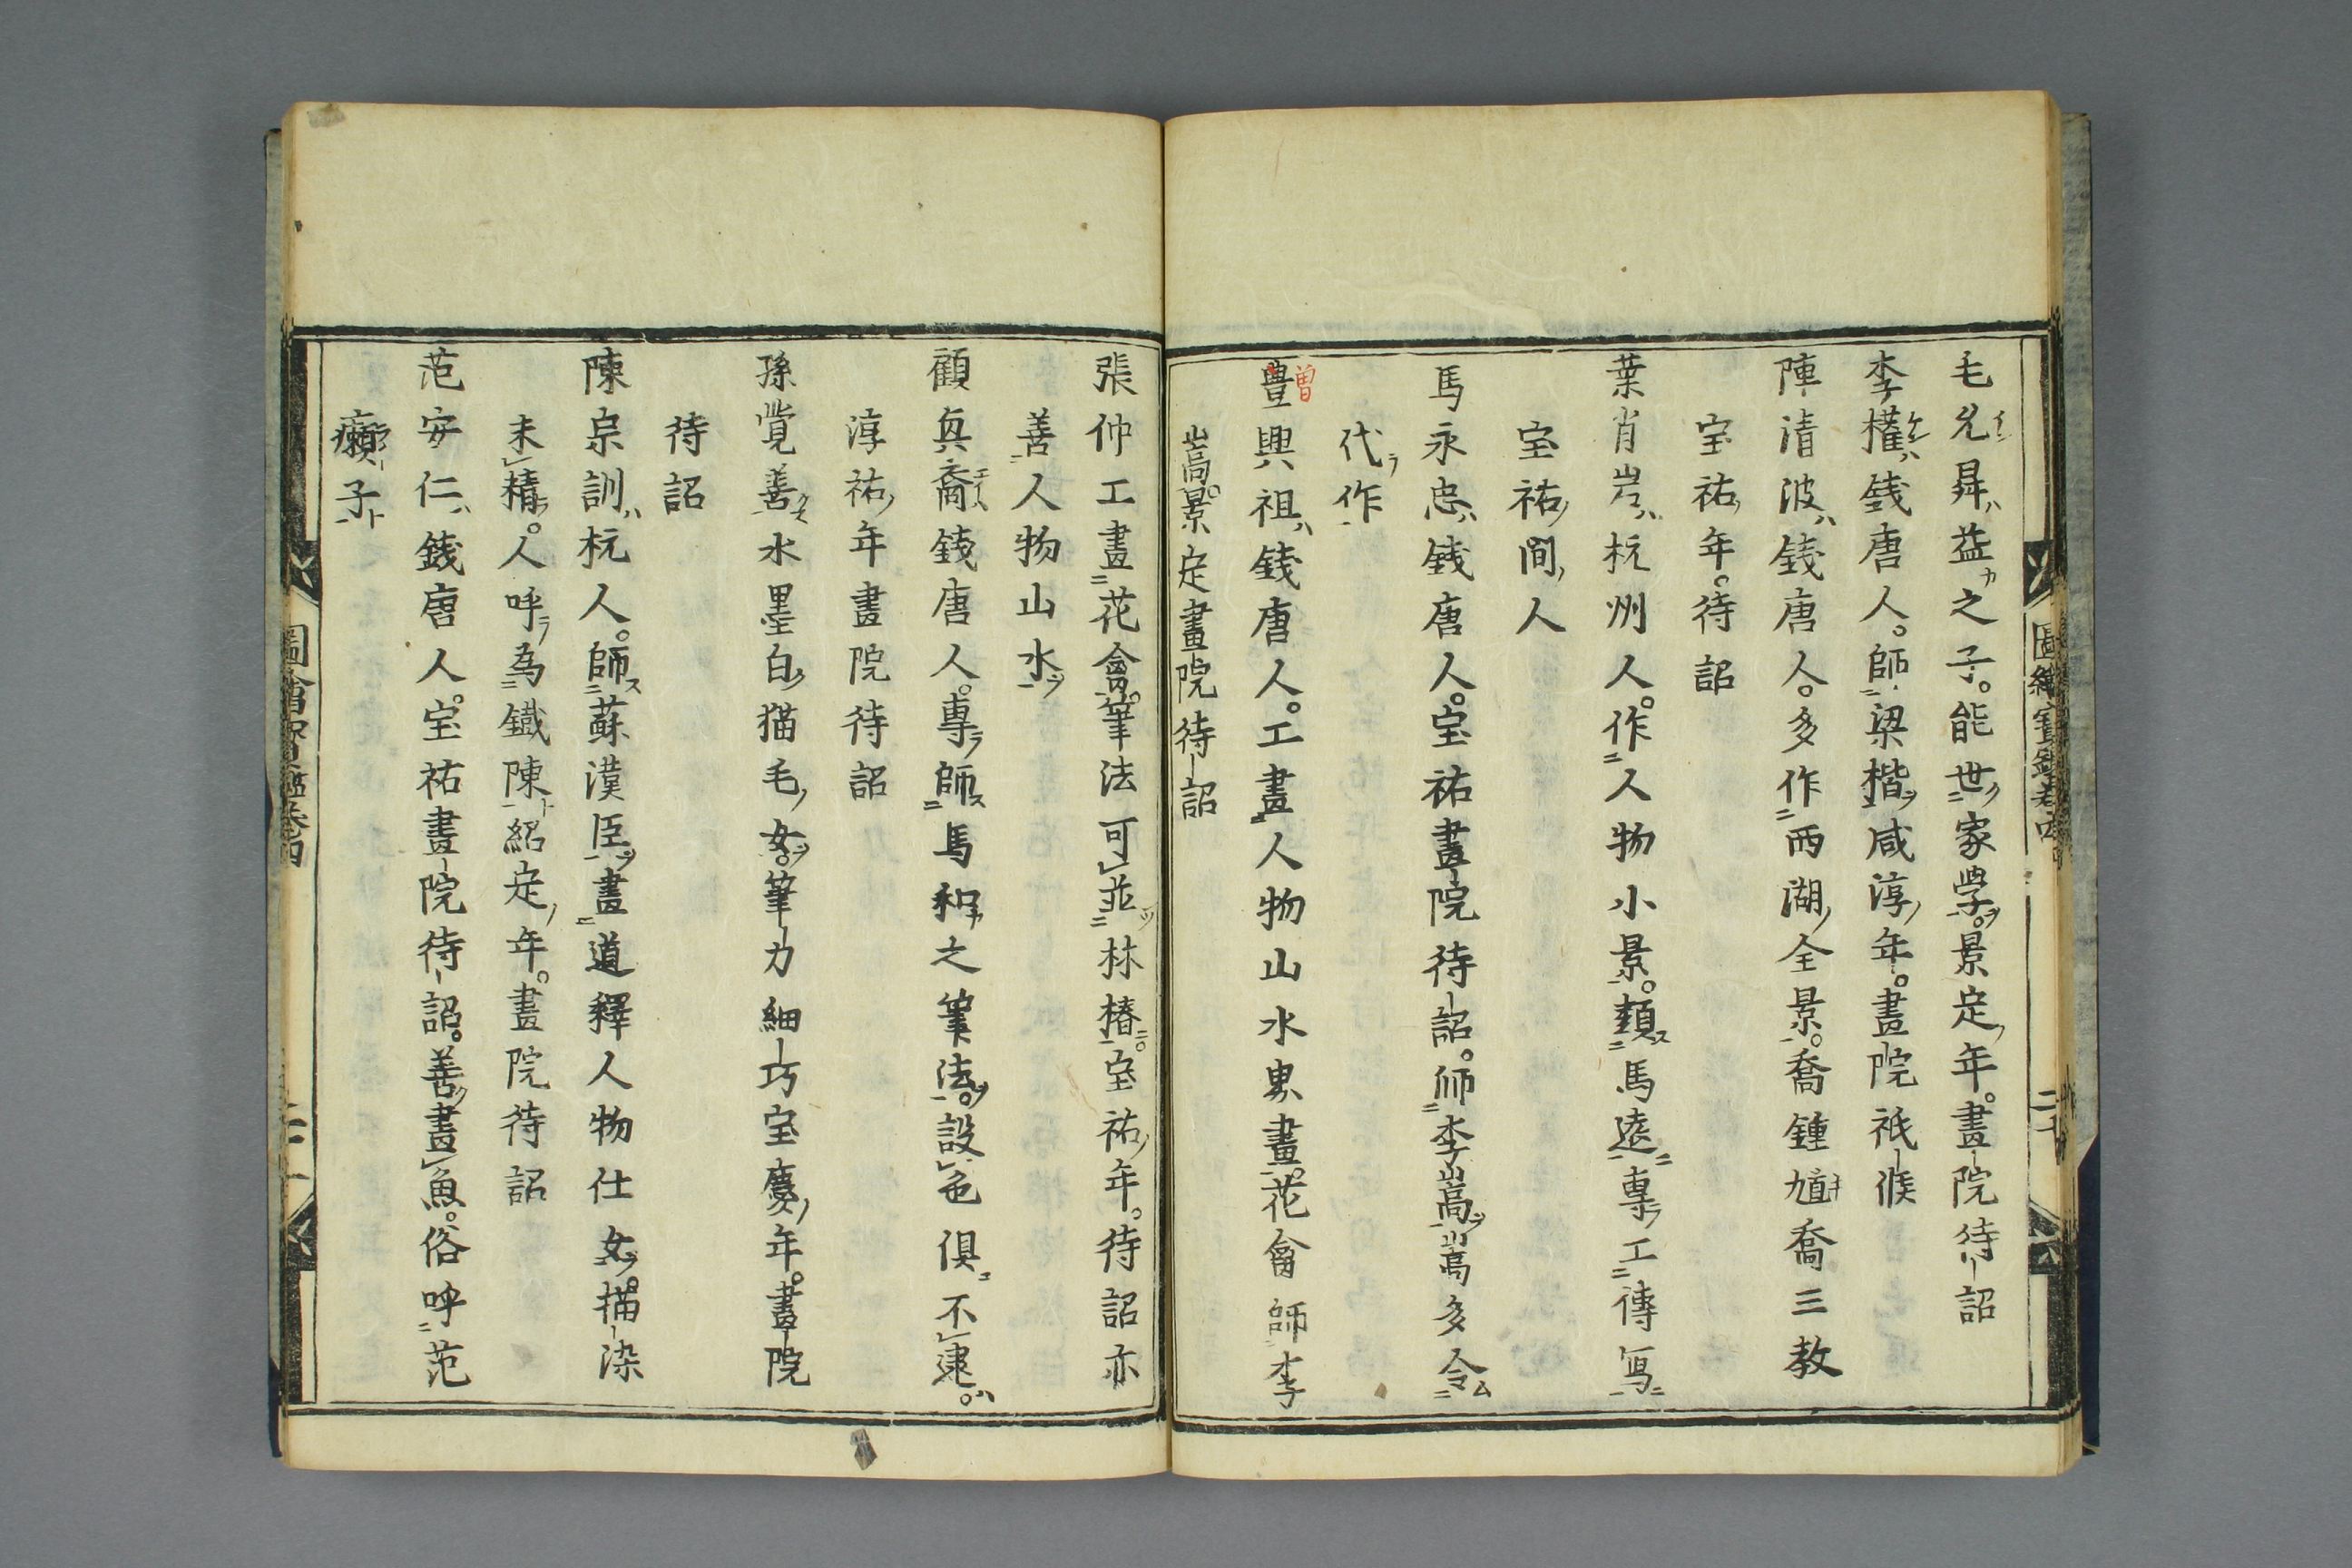 毛允昇益之子能世家學景定年畫院待詔
李權錢唐人師梁楷咸淳年畫院祗候
陳清波錢唐人多作西湖全景喬鍾馗喬三教
宝祐年待詔
葉肖岩杭州人作人物小景類馬遠專工傳寫
宝祐間人
馬永忠錢唐人宝祐畫院待詔師李嵩嵩多令
代作
豊興祖錢唐人工畫人物山水界畫花禽師李
曽
嵩景定畫院待詔
張仲工畫花禽筆法可並林椿宝祐年待詔亦
善人物山水
顧興裔錢唐人專師馬和之筆法設色俱不逮
淳祐年畫院待詔
孫覚善水墨白猫毛女筆力細巧宝慶年畫院
待詔
陳宗訓杭人師蘇漢臣畫道釋人物仕女描染
未精人呼為鐵陳紹定年畫院待詔
范安仁錢唐人宝祐畫院待詔善畫魚俗呼范
癩子
圖繪寳鑑卷四